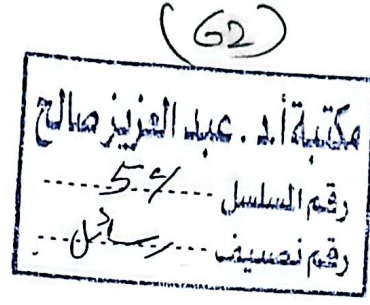 (62)
مكتبة أ.د. عبد العزيز صالح
رقم المسلسل
رقم تصنيف رسائل